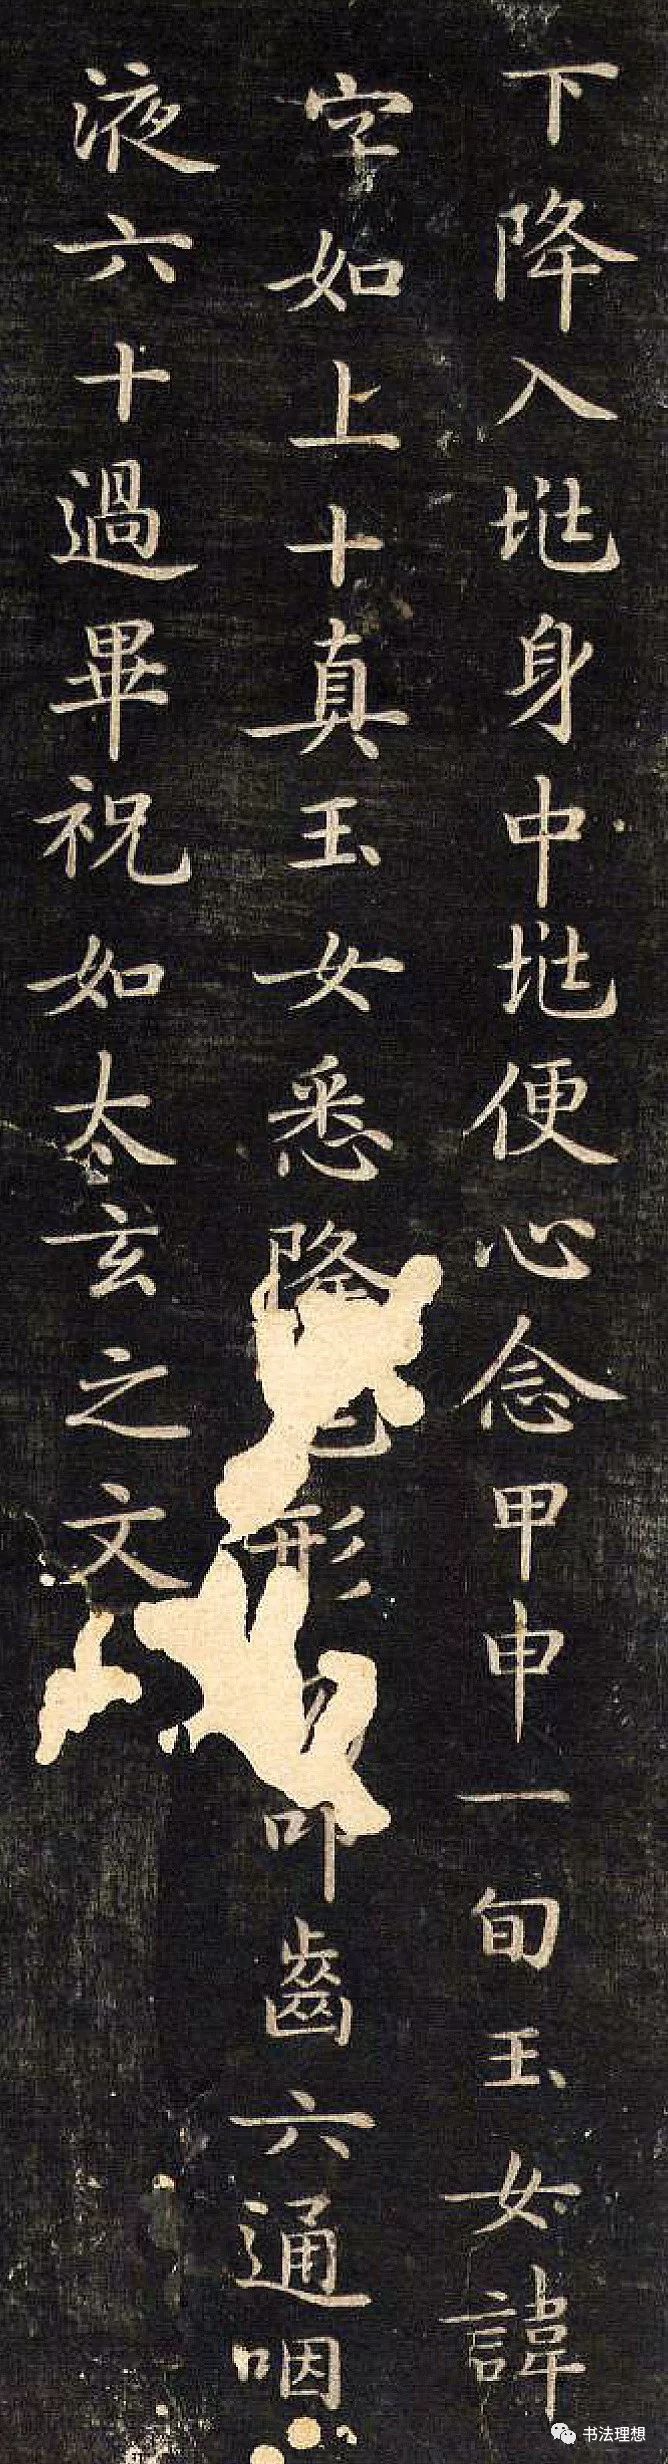 下降入垗身中垗便心念甲申一旬玉女諱
字如上十真玉女悉降己形叩齒六通咽
液六十過畢祝如太玄之文
书法理想